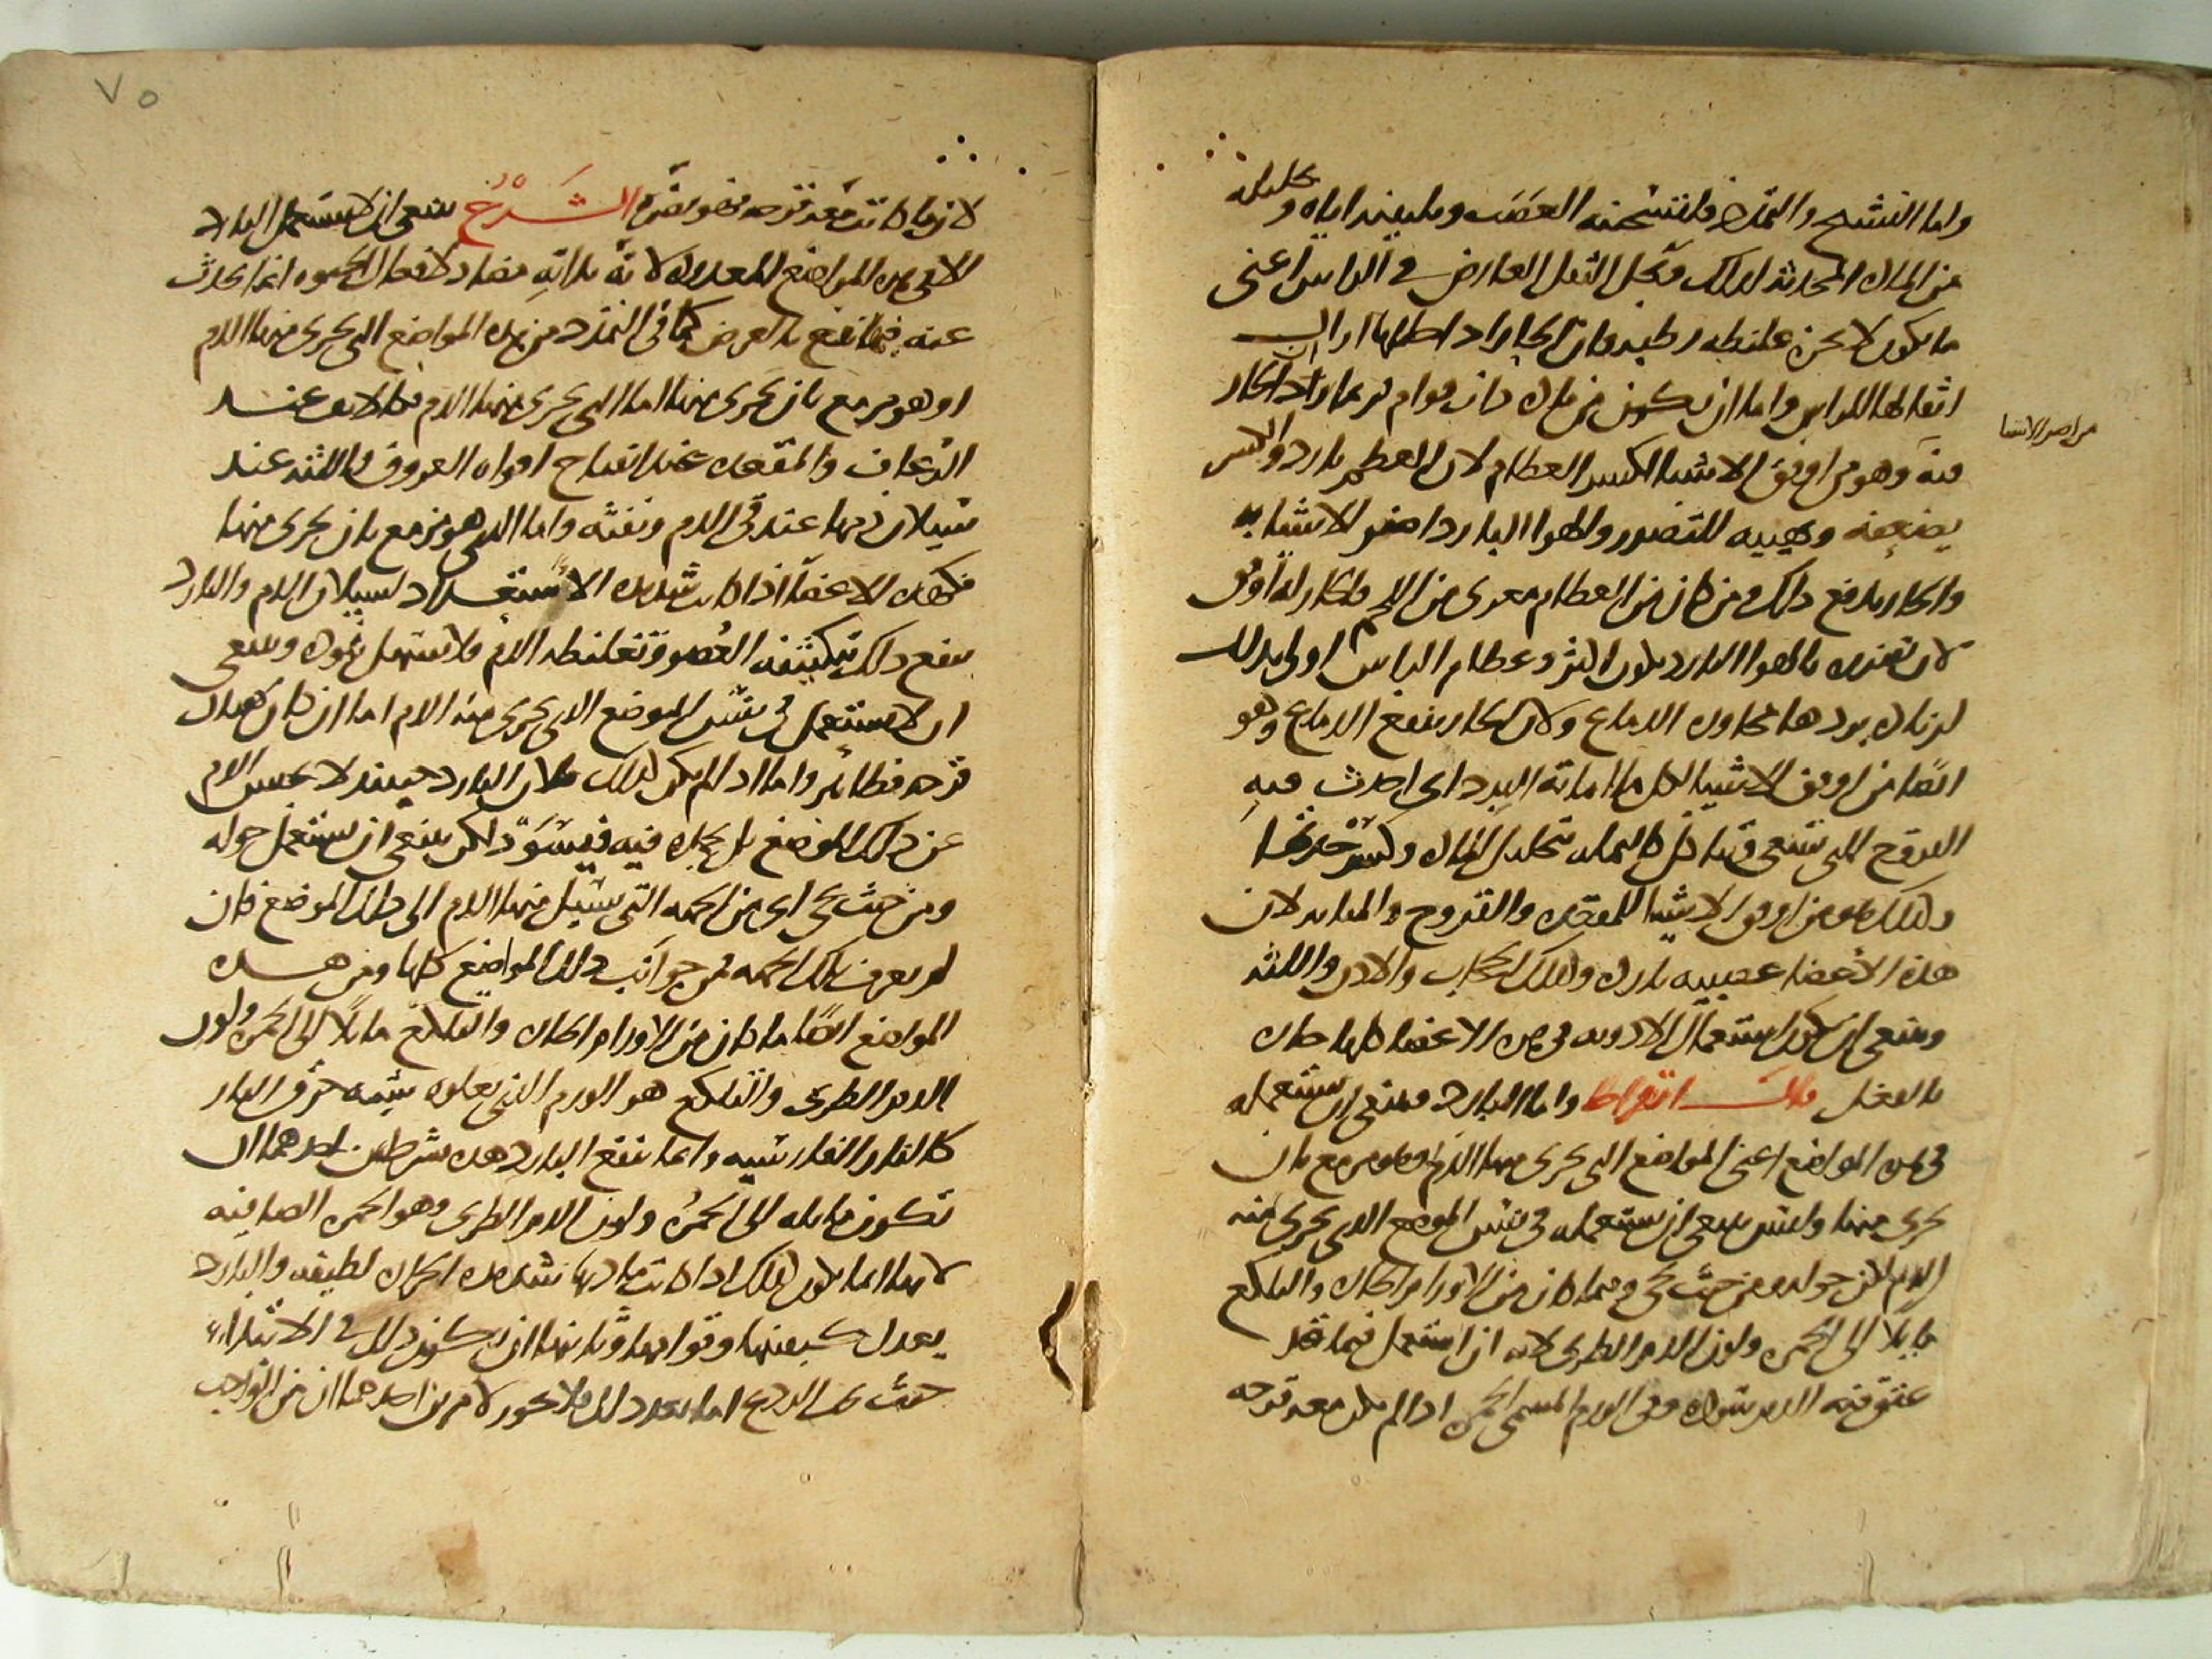 واما التشنج والتمدد فلتسخينه العصب وتليينه اياه وتحليله
من المادة المحدثة لذلك ويحل الثقل العارض في الراس اعني
ما يكون لا بخرة غليظة رطبة فان الحار اذا
اثقالها للراس واما ان يكون من مادة ذات قوام فربما زاد الحار
فيه وهو من اوفق الاشيا لكسر العظام لان العظم بارد والكسر
من اضر الاشيا
يضعفه ويهييه للتضرر والهوا البارد اضر الاشيا به
والحار يدفع ذلك ومن كان من العظام معرى من اللحم فالحار له اوفق
لان تضرره بالهوا البارد يكون اكثر وعظام الراس اولى بذلك
لزيادة بردها بمجاورة الدماغ ولان الحار ينفع الدماغ وهو
ايضا من اوفق الاشيا لكل ما اماته البرد اى احدث فيه
القروح التي تسعى وتتاكل كالنملة لتحليل المادة وكسر حدتها
وكذلك هو من اوفق الاشيا للمقعدة والقروح والمثانة لان
هذه الاعضا عصبية باردة وكذلك الحجاب والاذن واللثة
وينبغى ان يكون استعمال الادوية فى هذه الاعضا كلها حارة
بالفعل قال ابقراط واما البارد فينبغى ان يستعمله
فى هذه المواضع اعنى المواضع التى يجرى منها الدم او هو مزمع بان
يجرى منها وليس ينبغى ان يستعمله فى نفس الموضع الذى يجرى منه
الدم لكن حوله ومن حيث يجى وفيما كان من الاورام الحارة والتلكع
مايلا الى الحمرة ولون الدم الطرى لانه ان استعمل فيما قد
عتق فيه الدم سوده وفى الورم المسمى الحمرة اذا لم يكن معه قرحة
لان ما كانت معه قرحة فهو يضره الشرح ينبغى ان لا يستعمل البارد
الا فى هذه المواضع المعدودة لانه بذاته مضاد لافعال الحيوة انما يحدث
عنه فيها نفع بالعرض كما فى التمدد من هذه المواضع التى يجرى منها الدم
او هو مزمع بان يجرى منها اما التى يجرى منها الدم فكالانف عند
الرعاف والمقعدة عند انفتاح افواه العروق واللثة عند
سيلان دمها عند قى الدم ونفثه واما الذى هو مزمع بان يجرى منها
فكهذه الاعضا اذا كانت شديدة الاستعداد لسيلان الدم والبارد
ينفع ذلك بتكثيفه العضو وتغليظه الدم فلا يسهل نفوذه وينبغى
ان لا يستعمل فى نفس الموضع الذى يجرى منه الدم اما ان كان هناك
قرحة فظاهر واما اذا لم يكن كذلك فلان البارد حينئذ لا يحبس الدم
عن ذلك الموضع بل يجمده فيه فيسود لكن ينبغى ان يستعمل حوله
ومن حيث يجى اى من الجهة التى يسيل منها الدم الى ذلك الموضع فان
لم يعرف تلك الجهة فمن جوانب ذلك المواضع كلها ومن هذه
المواضع ايضا ما كان من الاورام الحارة والتلكع مايلا الى الحمرة ولون
الدم الطرى والتلكع هو الورم الذى يعلوه شبه حرق النار
كالنار الفارسية وانما ينفع البارد هذه بشرطين احدهما ان
تكون مايلة الى الحمرة ولون الدم الطرى وهو الحمرة الصافية
لانها انما يكون كذلك اذا كانت مادتها شديدة الحرارة لطيفة والبارد
يعدل كيفيتها وقوامها وثانيهما ان يكون ذلك فى الابتداء
حيث يجب الردع اما بعد ذلك فلا يجوز لامرين احدهما ان من الواجب